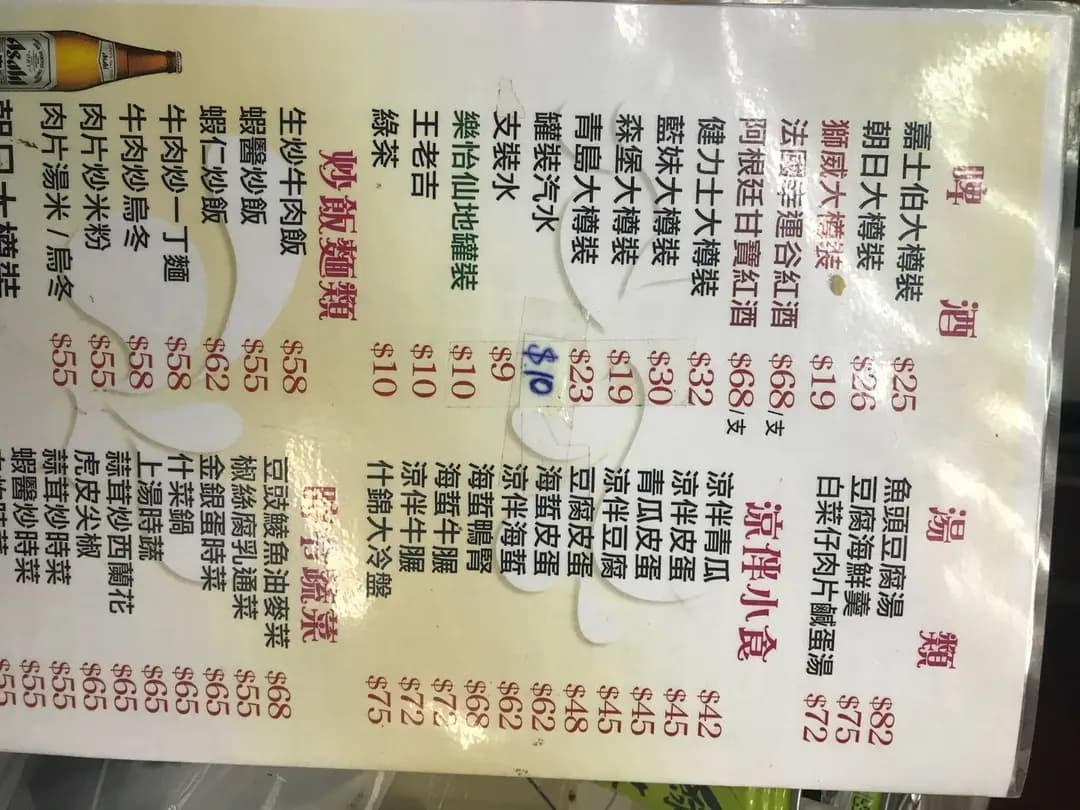 啤酒
嘉士伯大樽裝 $25
朝日大樽裝 $26
獅威大樽裝 $19
法國幸運谷紅酒 $68/支
阿根廷甘寶紅酒 $68/支
健力士大樽裝 $32
藍妹大樽裝 $30
森堡大樽裝 $19
青島大樽裝 $23
罐裝汽水 $10
支裝水 $9
樂怡仙地罐裝 $10
王老吉 $10
綠茶 $10
炒飯麵類
生炒牛肉飯 $58
蝦醬炒飯 $55
蝦仁炒飯 $62
牛肉炒一丁麵 $58
牛肉炒烏冬 $58
肉片炒米粉 $55
肉片湯米/烏冬 $55
Asahi
朝日大樽裝
湯類
魚頭豆腐湯 $82
豆腐海鮮羹 $75
白菜仔肉片鹹蛋湯 $72
涼伴小食
涼伴青瓜 $42
涼伴皮蛋 $45
青瓜皮蛋 $45
涼伴豆腐 $45
豆腐皮蛋 $48
海蜇皮蛋 $62
涼伴海蜇 $62
海蜇鴨腎 $68
海蜇牛𦟌 $72
涼伴牛𦟌 $72
什錦大冷盤 $75
時令蔬菜
豆豉鯪魚油麥菜 $68
椒絲腐乳通菜 $55
金銀蛋時菜 $65
什菜鍋 $65
上湯時蔬 $65
蒜茸炒西蘭花 $65
虎皮尖椒 $65
蒜茸炒時菜 $55
蝦醬炒時菜 $55
$55